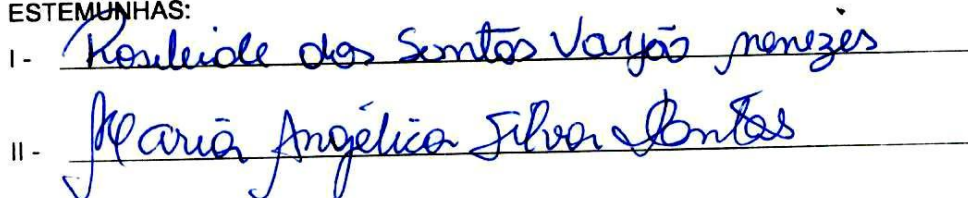 ESTEMUNHAS:
I - Rosileide dos Santos Varjão menezes
II - Maria Angélica Silva Santos